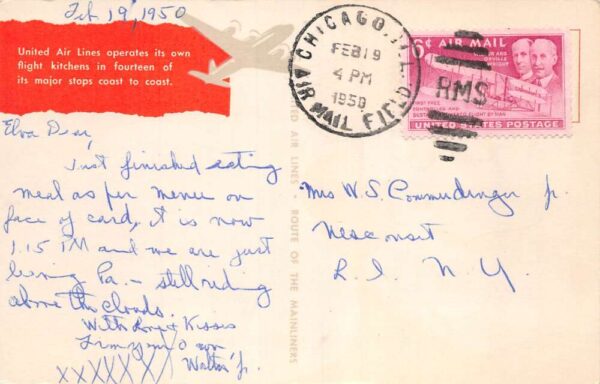 Feb 19, 1950
United Air Lines operates its own
flight kitchens in fourteen of
its major stops coast to coast.
Elva Dear,
Just finished eating
meal as per menu on
face of card, it is now
1.15 PM and we are just
leaving Pa. – still riding
above the clouds.
With Love & Kisses
From your own
Walter Jr.
XXXXXXX
UNITED AIR LINES • ROUTE OF THE MAINLINERS
CHICAGO, ILL.
FEB 19
4 PM
1950
AIR MAIL FIELD
RMS
6¢ AIR MAIL
AND
ORVILLE
WRIGHT
FIRST FREE
CONTROLLED AND
FLIGHT BY MAN
UNITED STATES POSTAGE
Mrs W. S. Commerdinger Jr.
Nesconset
L. I. N. Y.